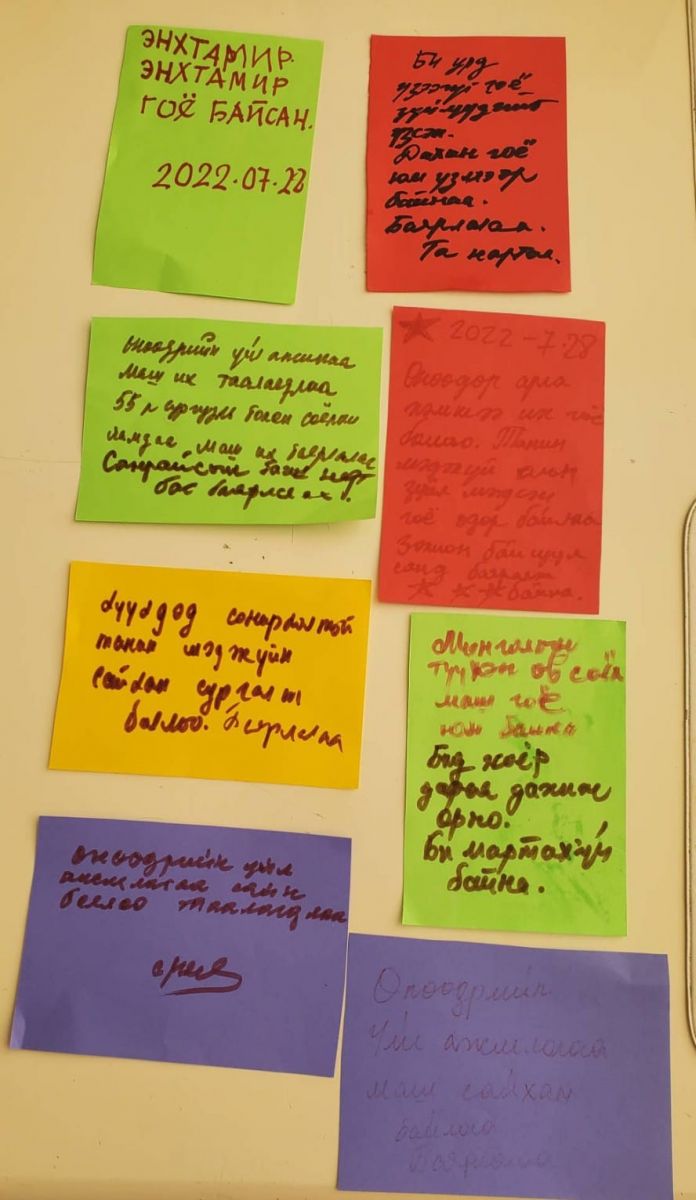 ЭНХТАМИР.
ЭНХТАМИР
ГОЁ БАЙСАН.
2022.07.28
Би урд
үзээгүй гоё
зүйлүүдийг
үзсэн.
Дахин гоё
юм үзмээр
байнаа.
Баярлалаа.
Та нартаа.
Өнөөдрийн үйл
маш их таалагдлаа
55 р сургууль болон соёлын
маш их баярлалаа
багш нарт
бас баярлалаа!
2022-7-28
Өнөөдөр арга
хэмжээ их гоё
болloo. Танин
мэдэхүй олон
зүйл мэдсэн
гоё өдөр байлаа
Зохион байгуул
санд баярлалаа
байна.
сонирхолтой
танин мэдэхүйн
сайхан сургалт
боллоо. Баярлалаа
Монголын
түүхэн өв соёл
маш гоё
юм байна
Бид хоёр
дараа дахиж
орно.
Би мартахгүй
байна.
Өнөөдрийн үйл
ажиллагаа сайн
боллоо таалагдлаа
Өнөөдрийн
Үйл ажиллагаа
маш сайхан
байлаа
Баярлалаа